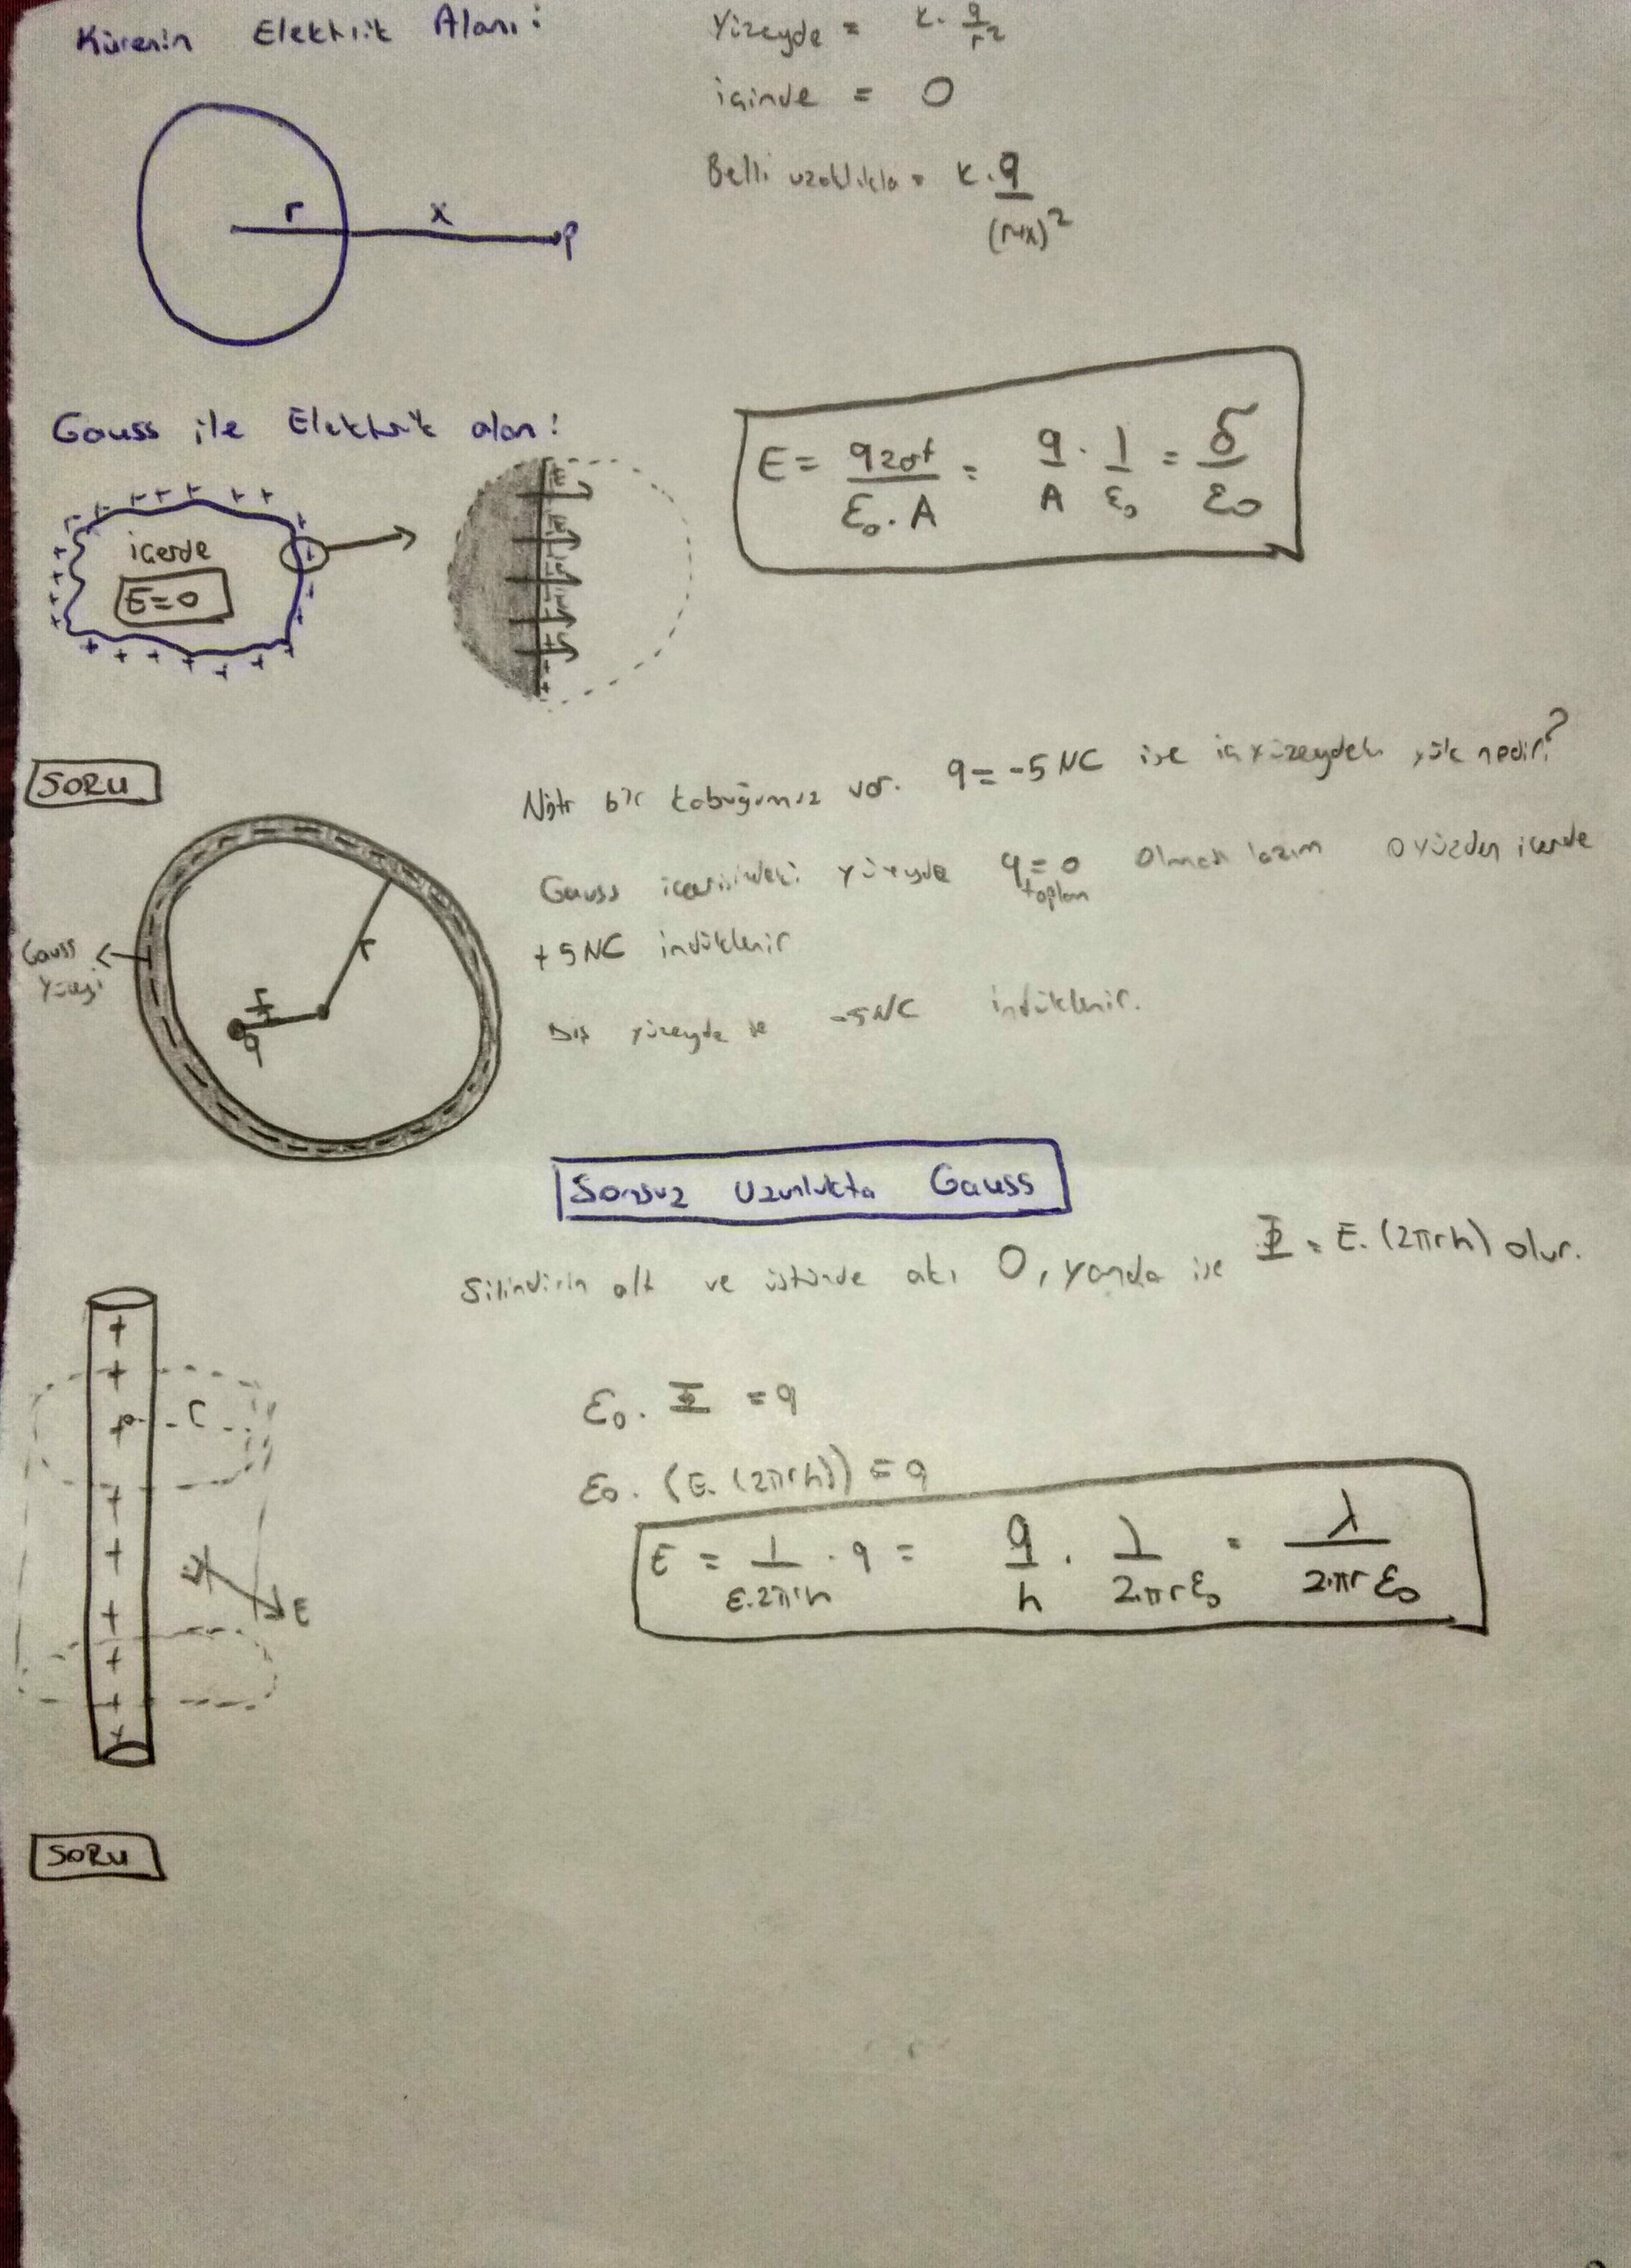 Kürenin Elektrik Alanı:
Yüzeyde = k. q/r²
içinde = 0
Belli uzaklıkta = k. q/(r+x)²
r x P
Gauss ile Elektrik alan:
içerde
E=0
E = qzat/ε₀.A = q/A . 1/ε₀ = δ/ε₀
SORU
Nötr bir kabuğumuz var. q = -5 NC ise iç yüzeydeki yük nedir?
Gauss içerisindeki yüzeyde q toplam = 0 olması lazım o yüzden içerde
+5 NC indüklenir
Dış yüzeyde ise -5 NC indüklenir.
Gauss
Yüzeyi
r
q
Sonsuz Uzunlukta Gauss
Silindirin alt ve üstünde akı 0, yanda ise Φ = E. (2πrh) olur.
ε₀. Φ = q
ε₀. (E. (2πrh)) = q
E = 1/ε.2πrh . q = q/h . 1/2πrε₀ = λ/2πrε₀
r
E
SORU